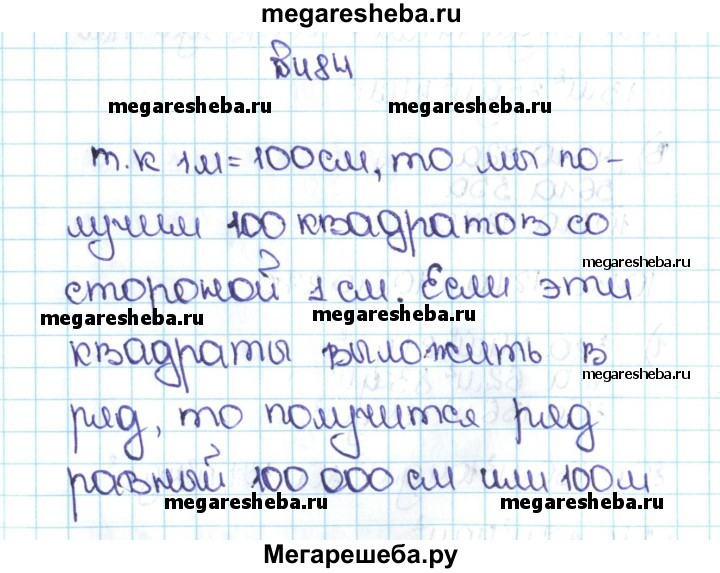 megaresheba.ru
Вн84
megaresheba.ru megaresheba.ru
т.к 1м=100см, то мы по-
лучим 100 квадратов со
megaresheba.ru
стороной 1 см. Если эти
megaresheba.ru megaresheba.ru
квадраты выложить в
megaresheba.ru
ряд, то получится ряд
равный 100 000 см или 100м
megaresheba.ru megaresheba.ru
Мегарешеба.ру